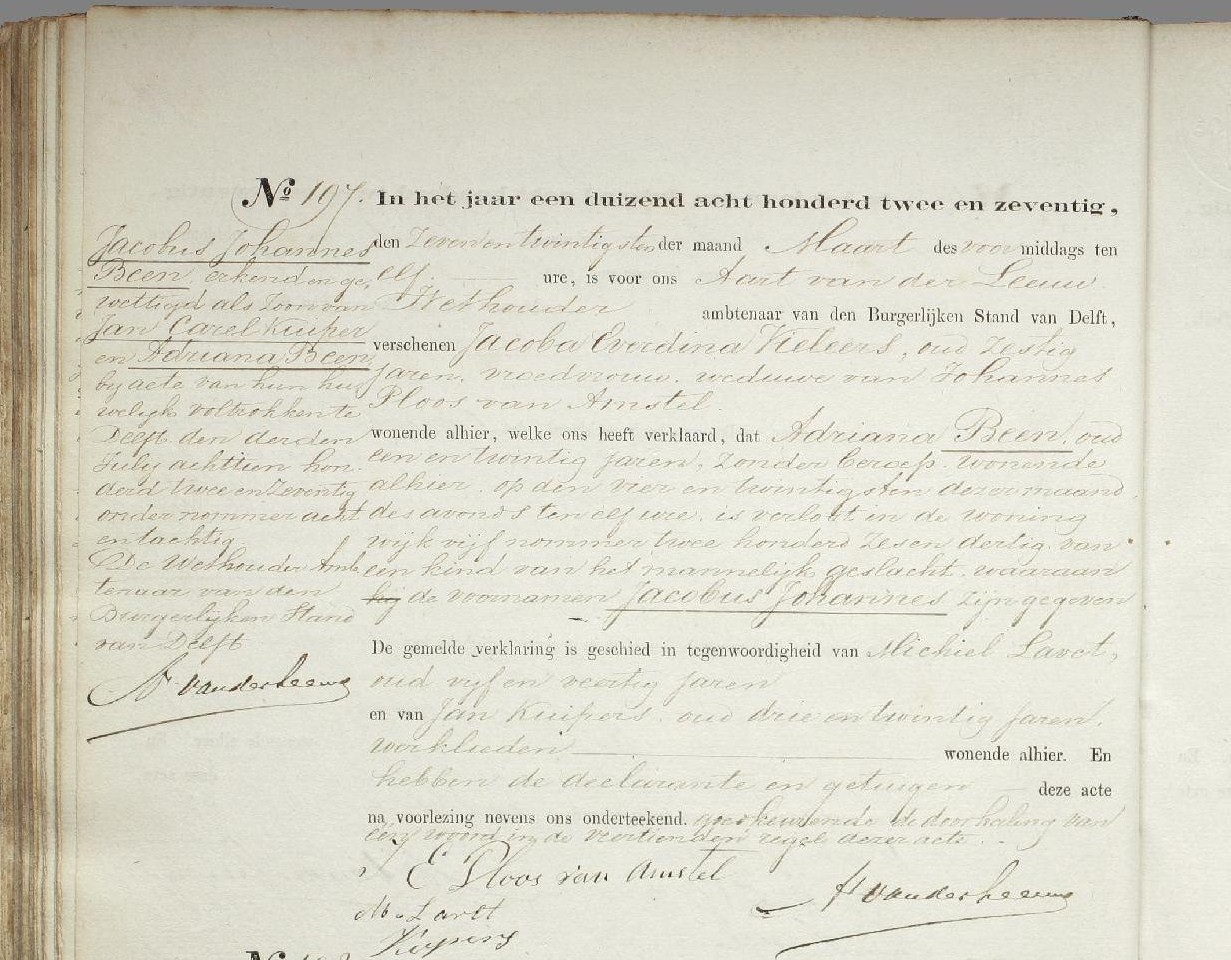 No 197. In het jaar een duizend acht honderd twee en zeventig,
Jacobus Johannes
Been erkend en ge,
wettigd als zoon van
Jan Carel Kuiper
en Adriana Been
by acte van hun hu,
welyk voltrokken te
Delft den derden
July achttien hon,
derd twee en zeventig
onder nommer acht
en tachtig
De Wethouder Amb,
tenaar van den
Burgerlyken Stand
van Delft
A. van der Leeuw
den Zeven en twintigsten der maand Maart des voor middags ten
elf ure, is voor ons Aart van der Leeuw
Wethouder ambtenaar van den Burgerlijken Stand van Delft,
verschenen Jacoba Everdina, oud zestig
jaren, vroedvrouw, weduwe van Johannes
Ploos van Amstel
wonende alhier, welke ons heeft verklaard, dat Adriana Been, oud
een en twintig jaren, zonder beroep, wonende
alhier, op den vier en twintigsten dezer maand,
des avonds ten elf ure, is verlost in de woning
wijk vijf nommer twee honderd zes en dertig, van
een kind van het mannelijk geslacht, waaraan
hij de voornamen Jacobus Johannes zijn gegeven
De gemelde verklaring is geschied in tegenwoordigheid van Michiel
oud vyf en veertig jaren
en van Jan Kuipers, oud drie en twintig jaren,
werklieden wonende alhier. En
hebben de declarante en getuigen deze acte
na voorlezing nevens ons onderteekend. goedkeurende de doorhaling van
één woord in de veertienden regel dezer acte.
E Ploos van Amstel
A van der Leeuw
M.
Kuypers
No